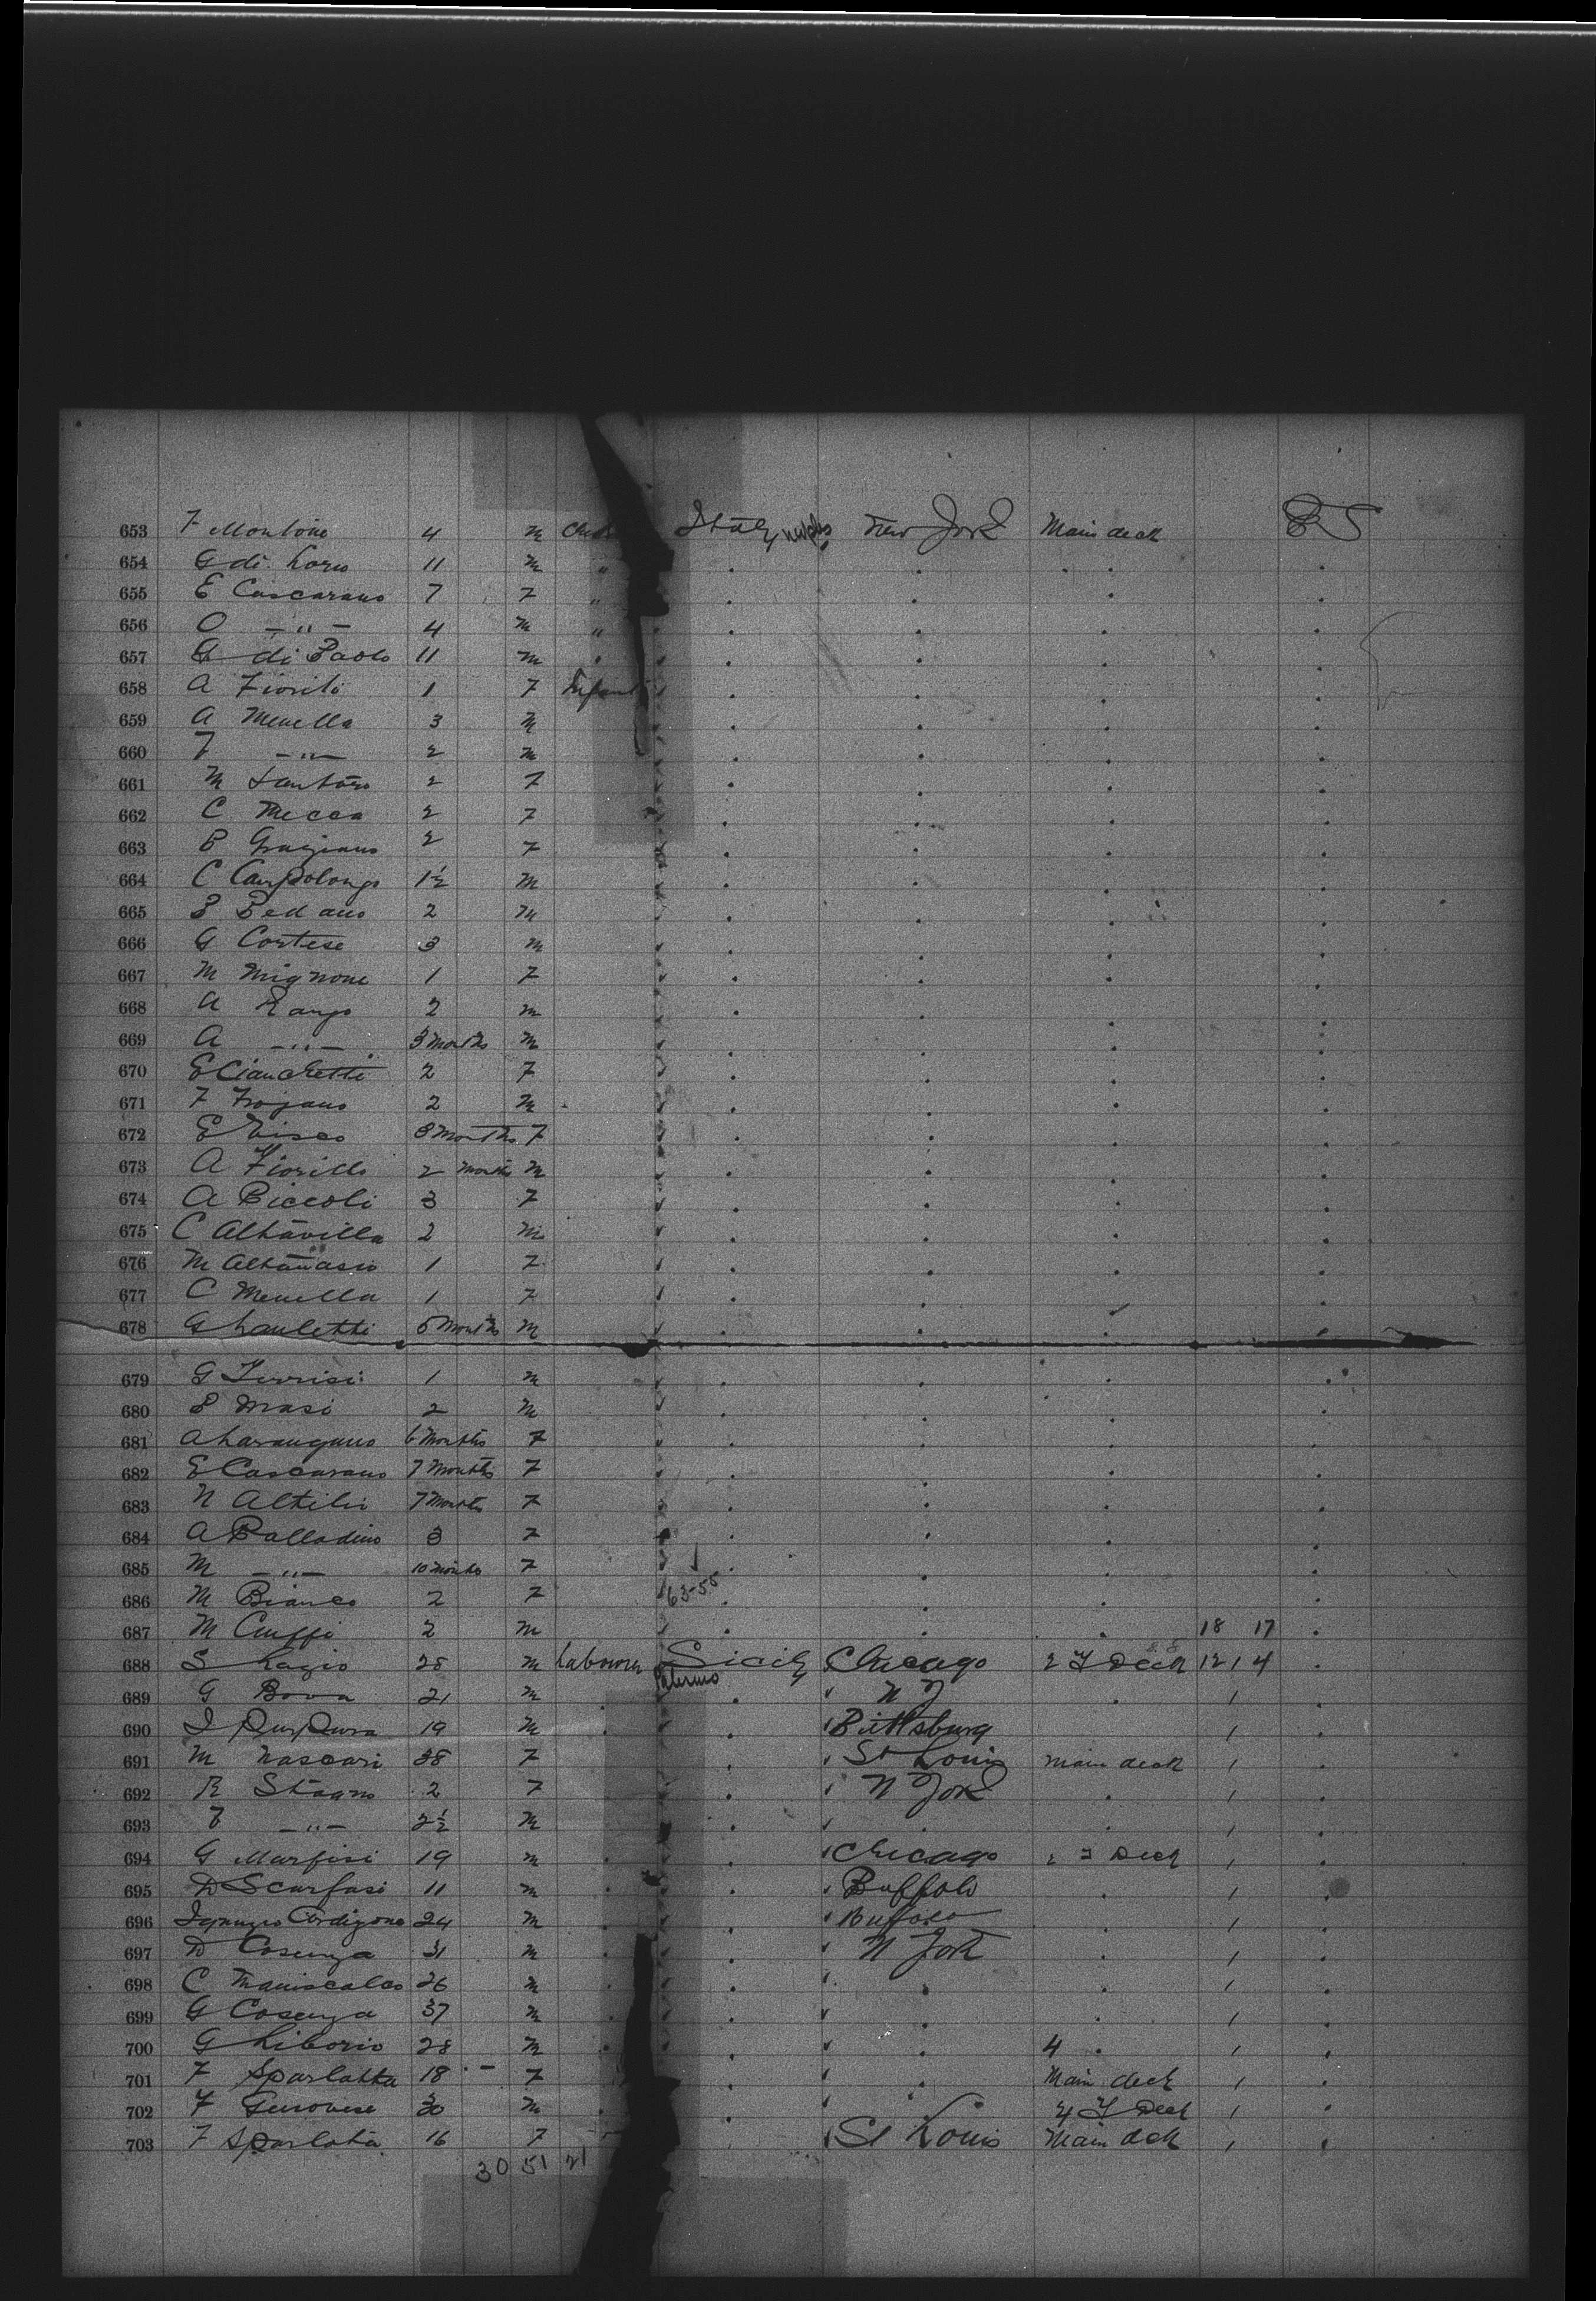 653 F Montone 4 M Child Italy Naples New York Main deck
654 G di Lorio 11 M "
655 E Cascarano 7 F "
656 O -"- 4 M "
657 G di Paolo 11 M
658 A Fiorito 1 F Infant
659 A Menella 3 M
660 F -"- 2 M
661 M Santoro 2 F
662 C Mecca 2 F
663 P Graziano 2 F
664 C Campolongo 1½ M
665 P Pedano 2 M
666 G Cortese 3 M
667 M Mignone 1 F
668 A Rango 2 M
669 A -"- 3 months M
670 E Cianchetti 2 F
671 F Trojano 2 M
672 E Visco 8 months F
673 A Fiorillo 2 months M
674 A Piccoli 3 F
675 C Altavilla 2 M
676 M Altanasio 1 F
677 C Menella 1 F
678 G Lauletti 5 months M
679 G Turrisi 1 M
680 P Masi 2 M
681 A Laraugano 6 months F
682 E Cascarano 7 months F
683 N Altilio 7 months F
684 A Palladino 3 F
685 M -"- 10 months F
686 M Bianco 2 F 63-55
687 M Ciuffi 2 M 18 17
688 S Lazio 28 M Labourer Sicily Palermo Chicago 2 T Deck 12 1 4
689 G Bova 21 M N Y 1
690 I Purpura 19 M Pittsburg 1
691 M Nascari 38 F St Louis Main deck 1
692 R Stagno 2 F N York 1
693 F -"- 2½ M 1
694 G Marfisi 19 M Chicago 2 T Deck 1
695 D Scarfasi 11 M Buffalo 1
696 Ignazio Cardizone 24 M Buffalo 1
697 D Cosenza 31 M N York 1
698 C Maniscalco 26 M 1
699 G Cosenza 37 M 1
700 G Liborio 28 M 4 1
701 F Sparlatta 18 - F Main deck 1
702 F Genovese 30 M 4 T Deck 1
703 F Sparlata 16 F St Louis Main deck 1
30 51 21